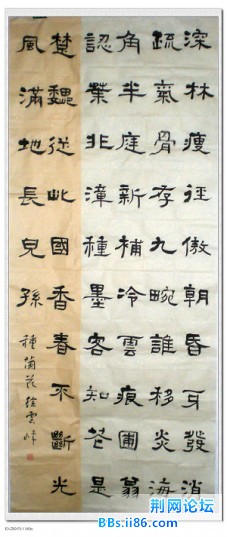 深林瘦徑傲朝昏牙發消
疏氣骨存九畹誰移炎海
角半庭新補冷雲痕圃翁
認葉非漳種墨客知花是
楚魂從此國香春不斷光
風滿地長兒孫
種蘭花徐雲峰
荆网论坛
BBs.ii86.com